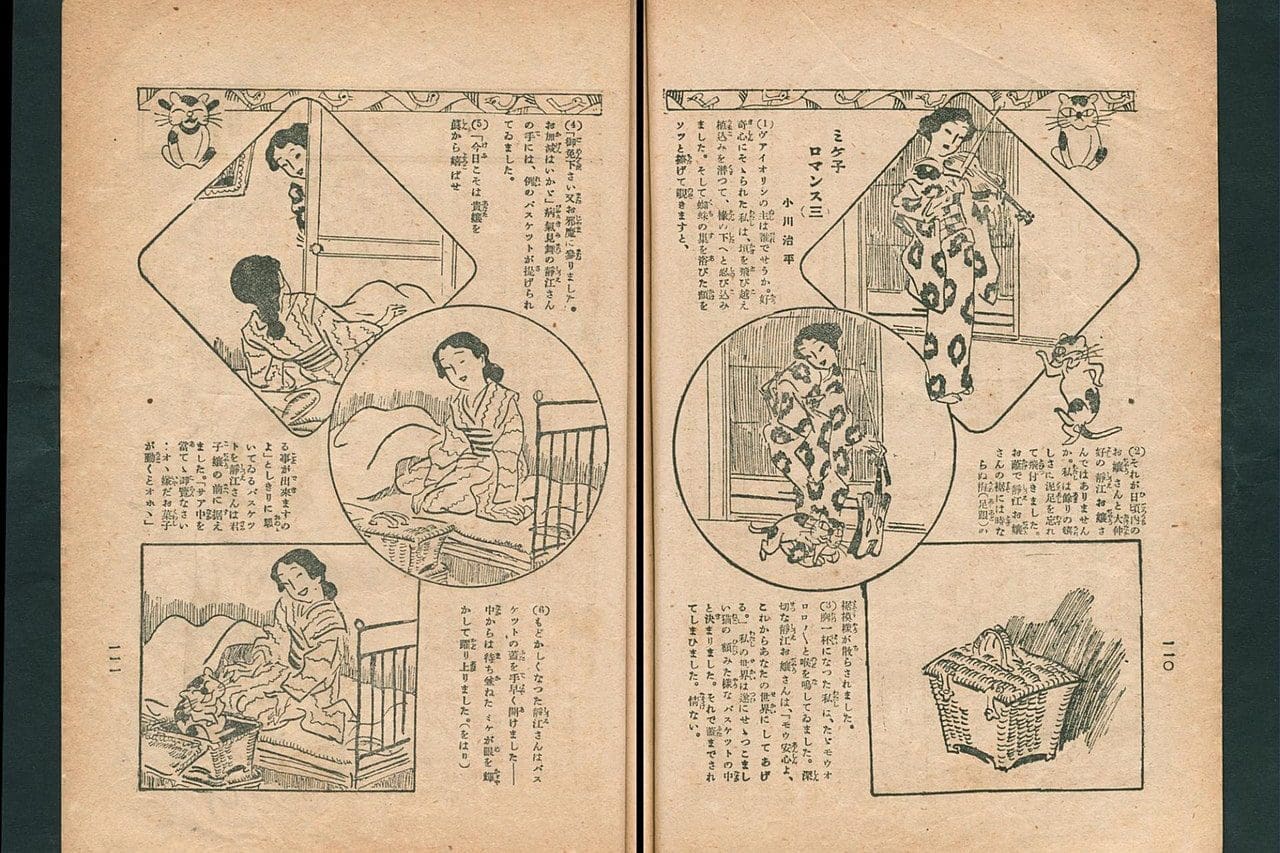 ミケ子
ロマンス三
小川治平
(1)ヴァイオリンの主は誰でせうか。好
奇心にそゝられた私は、垣を飛び越え
植込みを潜つて、椽の下へと忍び込み
ました。そして蜘蛛の巣を浴びた顔を
ソツと擡げて覗きますと、
(2)それが日頃内の
お孃さんと大仲
好の靜江お孃さ
んではありません
か。私は餘りの嬉
しさに泥足を忘れ
て飛付きました。
お蔭で靜江お孃
さんの裾には時な
らぬ梅(足跡)の
裾模樣が散らされました。
(3)胸一杯になつた私に、たゞモウオ
ロロ〳〵と喉を鳴してゐました。深
切な靜江お孃さんは、「モウ安心よ、
これからあなたの世界にしてあげ
る。」私の世界は遂にせゝつこまし
い猫の頼みた樣なバスケットの中
と決まりました。それで蓋までされ
てしまひました。情ない。
一一〇
(4)「御免下さい又お邪魔に參りました。
お加減はいかゞ」病氣見舞の靜江さん
の手には、例のバスケットが提げられ
てゐました。
(5)「今日こそは貴孃を
眞から嬉ばせ
る事が出來ますの
よ」としきりに覗
いてゐるバスケッ
トを靜江さんは君
子孃の前に据え
ました。「サア中を
當てゝ御覽なさい
・オヽ嫌だお菓子
が動くとオホヽ」
(6)もどかしくなつた靜江さんはバス
ケットの蓋を手早く開けました——
中からは待ち兼ねたミケが眼を輝
かして躍り上りました。(をはり)
一一一